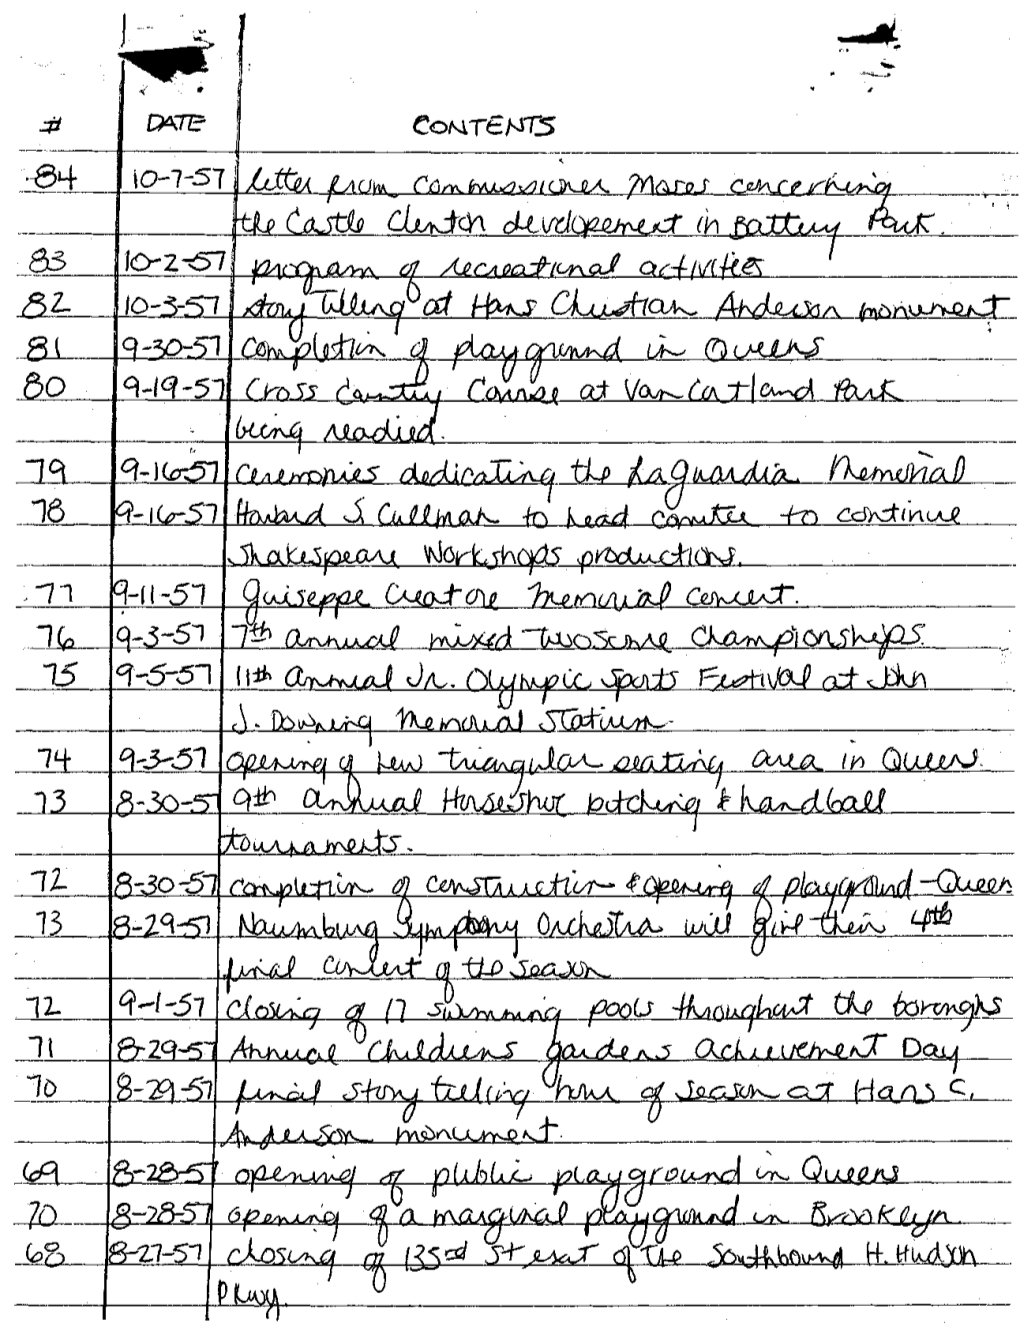 # DATE CONTENTS
84 10-7-57 letter from Commissioner Moses concerning
the Castle Clinton developement in Battery Park.
83 10-2-57 program of recreational activities
82 10-3-57 story telling at Hans Christian Anderson monument
81 9-30-57 completion of playground in Queens
80 9-19-57 Cross Country Course at Van Cortland Park
being readied.
79 9-16-57 Ceremonies dedicating the LaGuardia Memorial
78 9-16-57 Howard S. Cullman to head comitee to continue
Shakespeare Workshops productions.
77 9-11-57 Guiseppe Creatore Memorial concert.
76 9-3-57 7th annual mixed twosome championships.
75 9-5-57 11th Annual Jr. Olympic Sports Festival at John
J. Downing Memorial Statium.
74 9-3-57 opening of new triangular seating area in Queens.
73 8-30-57 9th annual Horseshoe pitching & handball
tournaments.
72 8-30-57 completion of construction & opening of playground-Queens
73 8-29-57 Naumburg Symphony Orchestra will give their 4th
final concert of the season
72 9-1-57 closing of 17 swimming pools throughout the boroughs
71 8-29-57 Annual Childrens gardens achievement Day
70 8-29-57 final story telling hour of season at Hans C.
Anderson monument.
69 8-28-57 opening of plublic playground in Queens
70 8-28-57 opening of a marginal playground in Brooklyn.
68 8-27-57 closing of 135rd St exit of the Southbound H. Hudson
Pkwy.